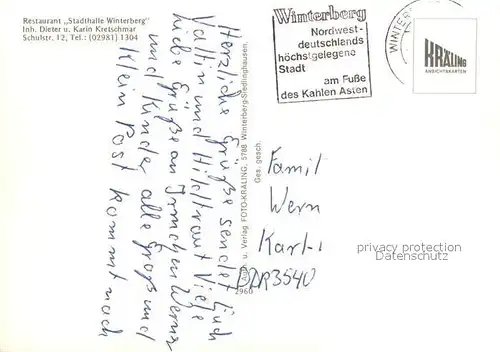 Restaurant „Stadthalle Winterberg"
Inh. Dieter u. Karin Kretschmar
Schulstr. 12, Tel.: (02981) 1304
Winterberg
Nordwest-
deutschlands
höchstgelegene
Stadt
am Fuße
des Kahlen Asten
WINTER
KRÄLING
ANSICHTSKARTEN
Herzliche Grüße sendet Euch
Valtin und Hildtraut Viele
liebe Grüße an Irmchen Werner
und Kinder alle Groß und
Klein Post kommt nach
Aufn. u. Verlag FOTO-KRÄLING, 5788 Winterberg-Siedlinghausen,
Ges. gesch.
2960
Famil
Wern
Karl-
DDR 3540
privacy protection
Datenschutz